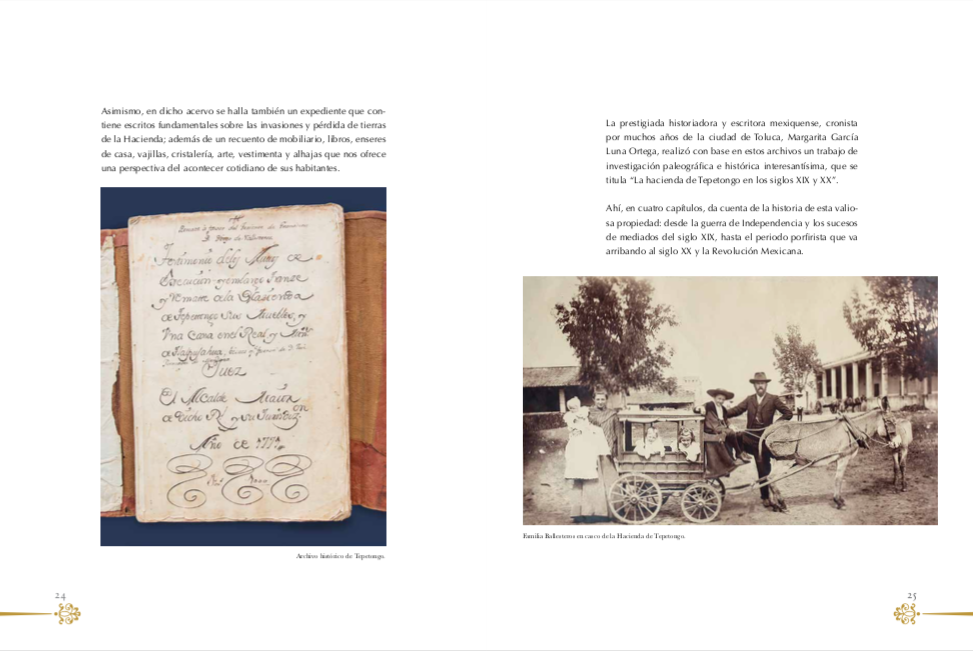 Asimismo, en dicho acervo se halla también un expediente que con-
tiene escritos fundamentales sobre las invasiones y pérdida de tierras
de la Hacienda; además de un recuento de mobiliario, libros, enseres
de casa, vajillas, cristalería, arte, vestimenta y alhajas que nos ofrece
una perspectiva del acontecer cotidiano de sus habitantes.
Juez
El Alcalde
Año de
Archivo histórico de Tepetongo.
24
La prestigiada historiadora y escritora mexiquense, cronista
por muchos años de la ciudad de Toluca, Margarita García
Luna Ortega, realizó con base en estos archivos un trabajo de
investigación paleográfica e histórica interesantísima, que se
titula “La hacienda de Tepetongo en los siglos XIX y XX”.
Ahí, en cuatro capítulos, da cuenta de la historia de esta valio-
sa propiedad: desde la guerra de Independencia y los sucesos
de mediados del siglo XIX, hasta el periodo porfirista que va
arribando al siglo XX y la Revolución Mexicana.
Ballesteros en casco de la Hacienda de Tepetongo.
25